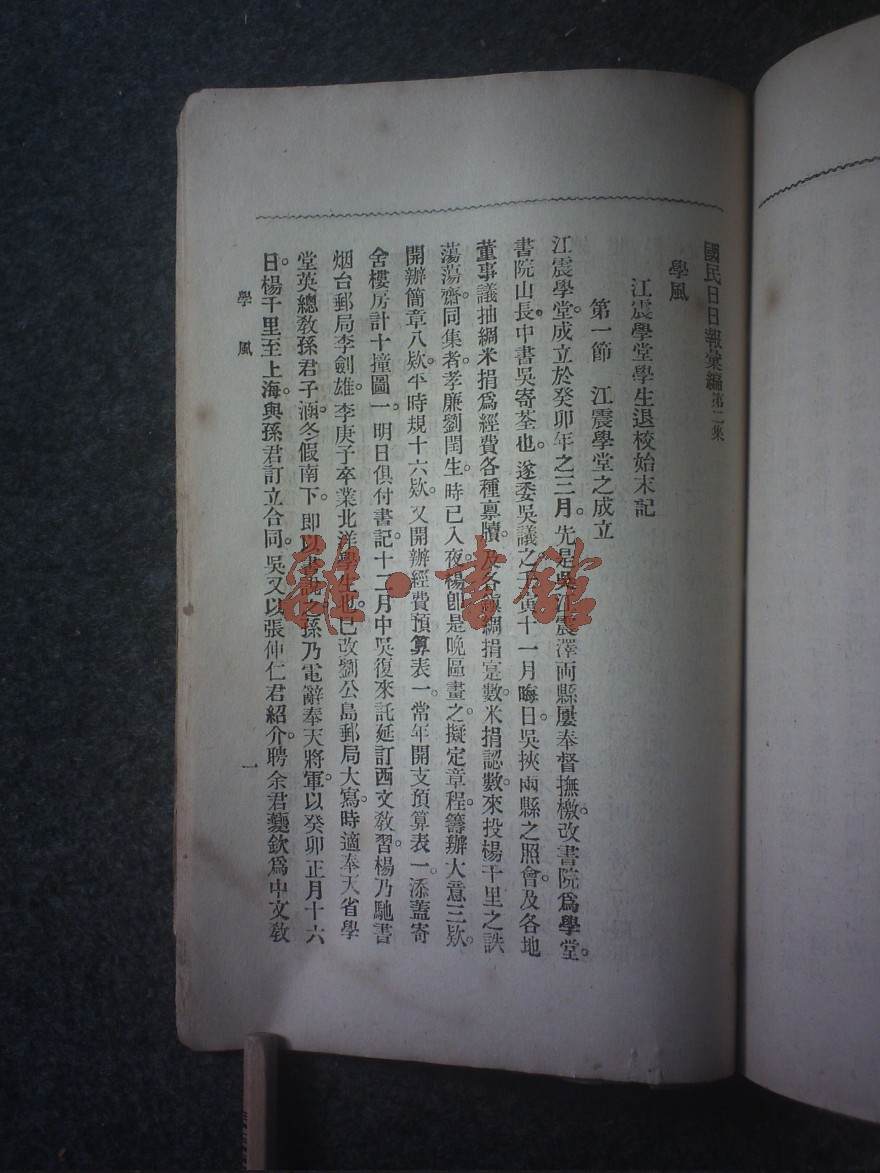 國民日日報彙編第二集
學風
江震學堂學生退校始末記
第一節 江震學堂之成立
江震學堂。成立於癸卯年之三月。先是吳江震澤両縣屢奉督撫檄。改書院爲學堂。
書院山長。中書吳寄荃也。遂委吳議之。壬寅十一月晦日。吳挾兩縣之照會。及各地
董事議抽綢米捐爲經費各種稟牘。及各鎭綢捐寔數。米捐認數。來投楊千里之訣
蕩蕩齋。同集者。孝廉劉閏生。時已入夜。楊卽是晚區畫之。擬定章程。籌辦大意三欵。
開辦簡章八欵。平時規十六欵。又開辦經費預算表一。常年開支預算表一。添蓋寄
舍樓房計十撞圖一。明日俱付書記。十二月中。吳復來託延訂西文教習。楊乃馳書
烟台郵局李劍雄。李庚子卒業北洋學生也。已改劉公島郵局大寫。時適奉天省學
堂英總教孫君子涵。冬假南下。即以書說之。孫乃電辭奉天將軍。以癸卯正月十六
日。楊千里至上海。與孫君訂立合同。吳又以張仲仁君紹介。聘余君夔欽爲中文教
學風
一
雜·書館